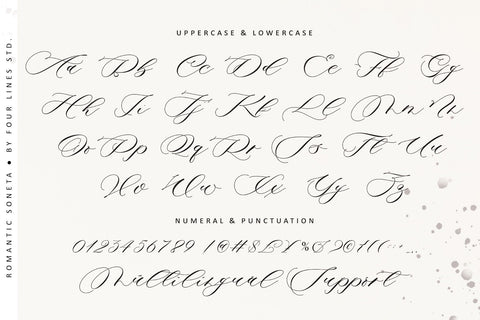 ROMANTIC SONETA • BY FOUR LINES STD.
UPPERCASE & LOWERCASE
Aa Bb Cc Dd Ee Ff Gg
Hh Ii Jj Kk Ll Mm Nn
Oo Pp Qq Rr Ss Tt Uu
Vv Ww Xx Yy Zz
NUMERAL & PUNCTUATION
0123456789 !@#$
Multilingual Support